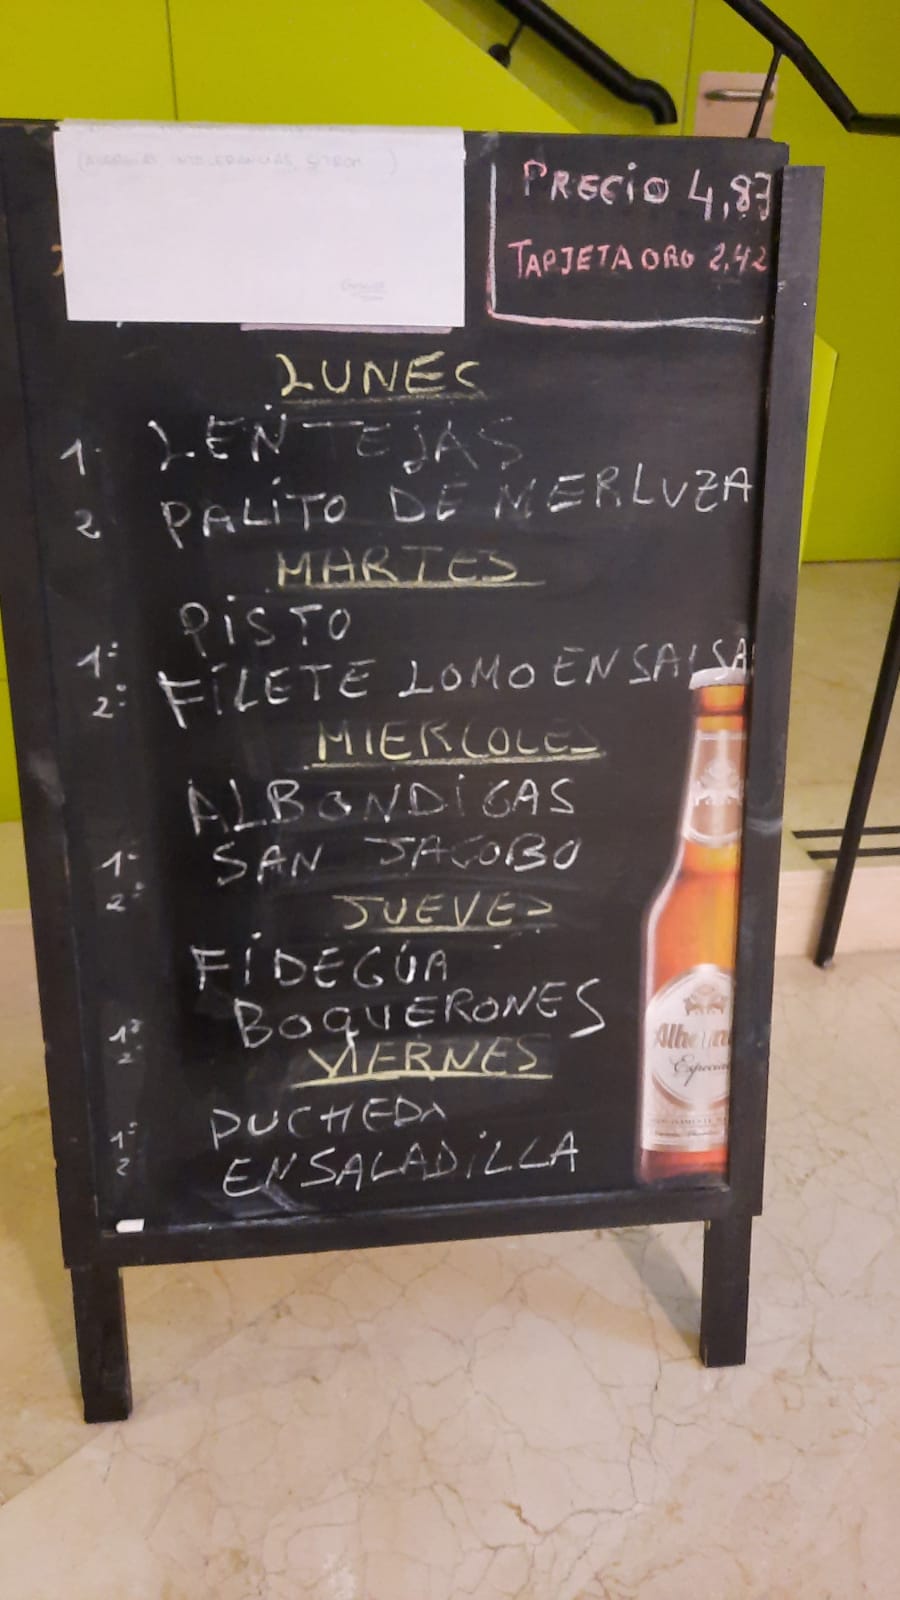 PRECIO 4,87
TARJETA ORO 2,42
LUNES
1. LENTEJAS
2 PALITO DE MERLUZA
MARTES
1º PISTO
2º FILETE LOMO EN SALSA
MIERCOLES
ALBONDIGAS
1º SAN JACOBO
2º
JUEVES
FIDEGUA
BOQUERONES
1º
2º
VIERNES
1º PUCHEDA
2 ENSALADILLA
Alhambra
Especial